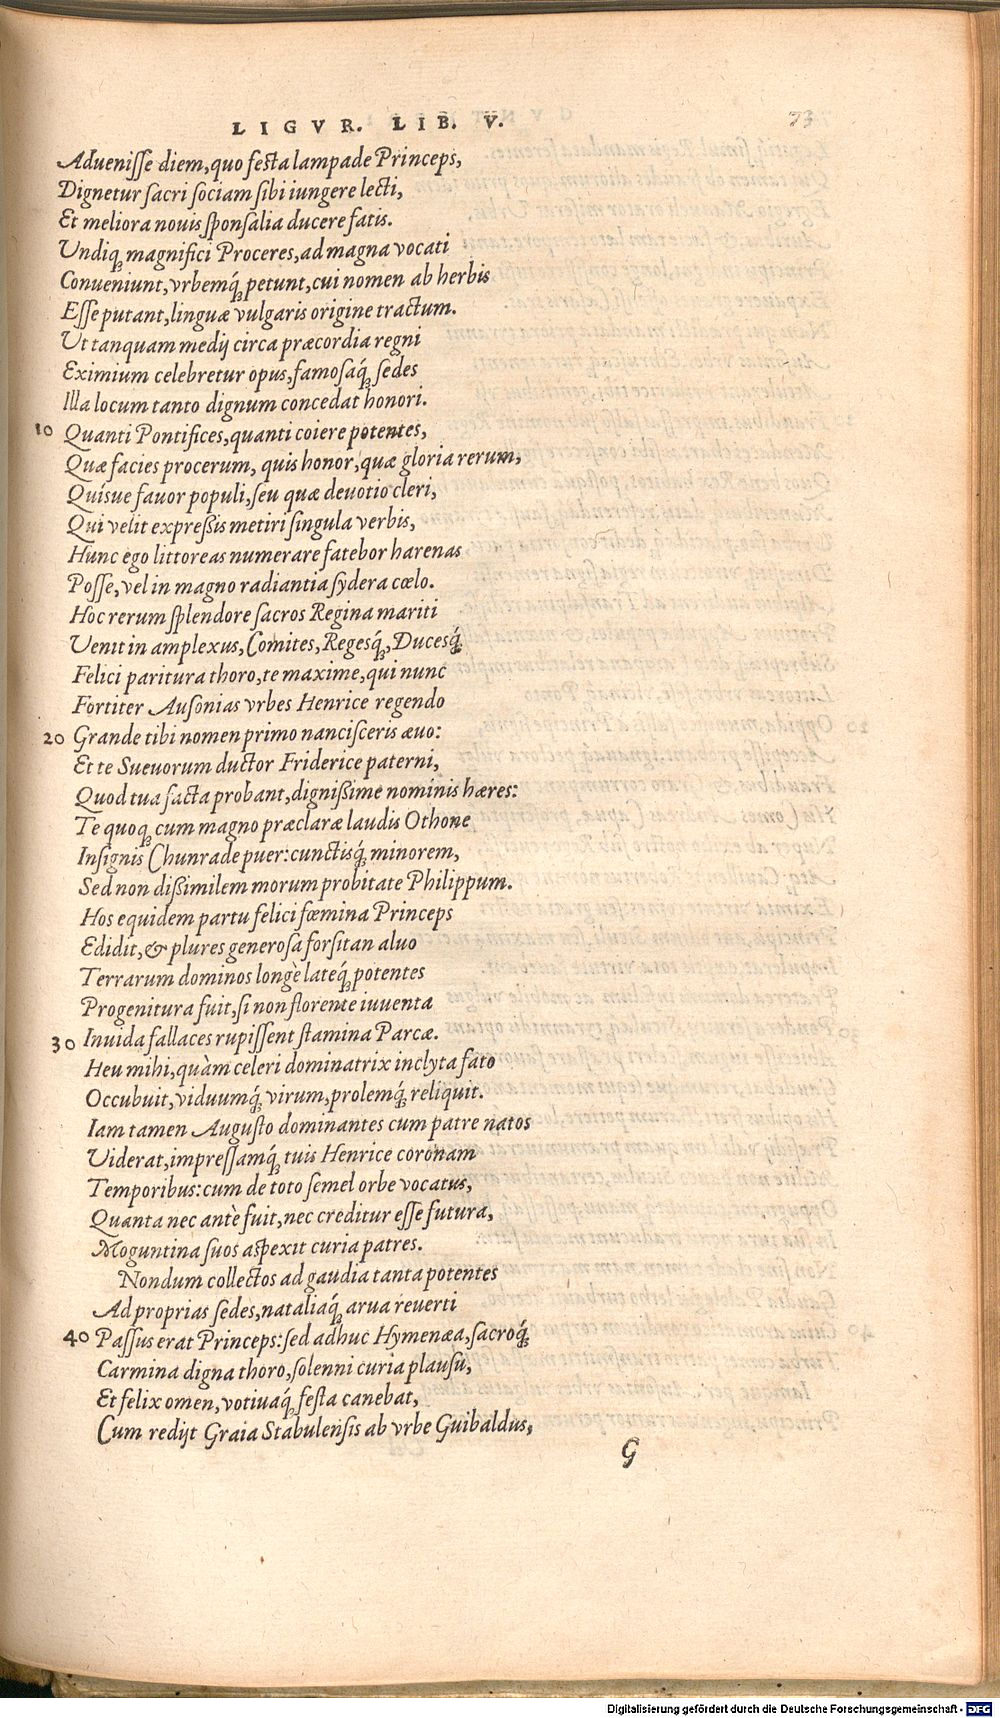 LIGVR. LIB. V. 73
Aduenisse diem, quo festa lampade Princeps,
Dignetur sacri sociam sibi iungere lecti,
Et meliora nouis sponsalia ducere fatis.
Undiq; magnifici Proceres, ad magna vocati
Conueniunt, vrbemq́; petunt, cui nomen ab herbis
Esse putant, linguæ vulgaris origine tractum.
Ut tanquam medij circa præcordia regni
Eximium celebretur opus, famosaq́; sedes
Illa locum tanto dignum concedat honori.
10 Quanti Pontifices, quanti coiere potentes,
Quæ facies procerum, quis honor, quæ gloria rerum,
Quisue fauor populi, seu quæ deuotio cleri,
Qui velit expreßis metiri singula verbis,
Hunc ego littoreas numerare fatebor harenas
Posse, vel in magno radiantia sydera cœlo.
Hoc rerum splendore sacros Regina mariti
Uenit in amplexus, Comites, Regesq́;, Ducesq́;
Felici paritura thoro, te maxime, qui nunc
Fortiter Ausonias vrbes Henrice regendo
20 Grande tibi nomen primo nancisceris æuo:
Et te Sueuorum ductor Friderice paterni,
Quod tua facta probant, dignißime nominis hæres:
Te quoq; cum magno præclaræ laudis Othone
Insignis Chunrade puer: cunctisq́; minorem,
Sed non dißimilem morum probitate Philippum.
Hos equidem partu felici fœmina Princeps
Edidit, & plures generosa forsitan aluo
Terrarum dominos longè lateq́; potentes
Progenitura fuit, si non florente iuuenta
30 Inuida fallaces rupissent stamina Parcæ.
Heu mihi, quàm celeri dominatrix inclyta fato
Occubuit, viduumq́; virum, prolemq́; reliquit.
Iam tamen Augusto dominantes cum patre natos
Uiderat, impressamq́; tuis Henrice coronam
Temporibus: cum de toto semel orbe vocatus,
Quanta nec antè fuit, nec creditur esse futura,
Moguntina suos aspexit curia patres.
Nondum collectos ad gaudia tanta potentes
Ad proprias sedes, nataliaq́; arua reuerti
40 Passus erat Princeps: sed adhuc Hymenæa, sacroq́;
Carmina digna thoro, solenni curia plausu,
Et felix omen, votiuaq́; festa canebat,
Cum redijt Graia Stabulensis ab vrbe Guibaldus,
G
Digitalisierung gefördert durch die Deutsche Forschungsgemeinschaft - DFG